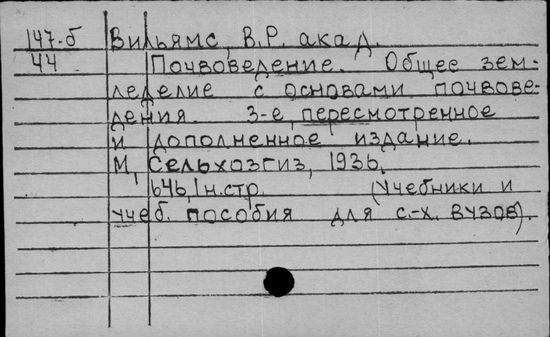 147-б Вильямс, В.Р. акад.
44 Почвоведение. Общее зем-
леделие с основами почвове-
дения. 3-е, пересмотренное
и дополненное издание.
М, Сельхозгиз, 1936,
646, 1 н.стр. (Учебники и
учеб. пособия для с.-х. вузов).